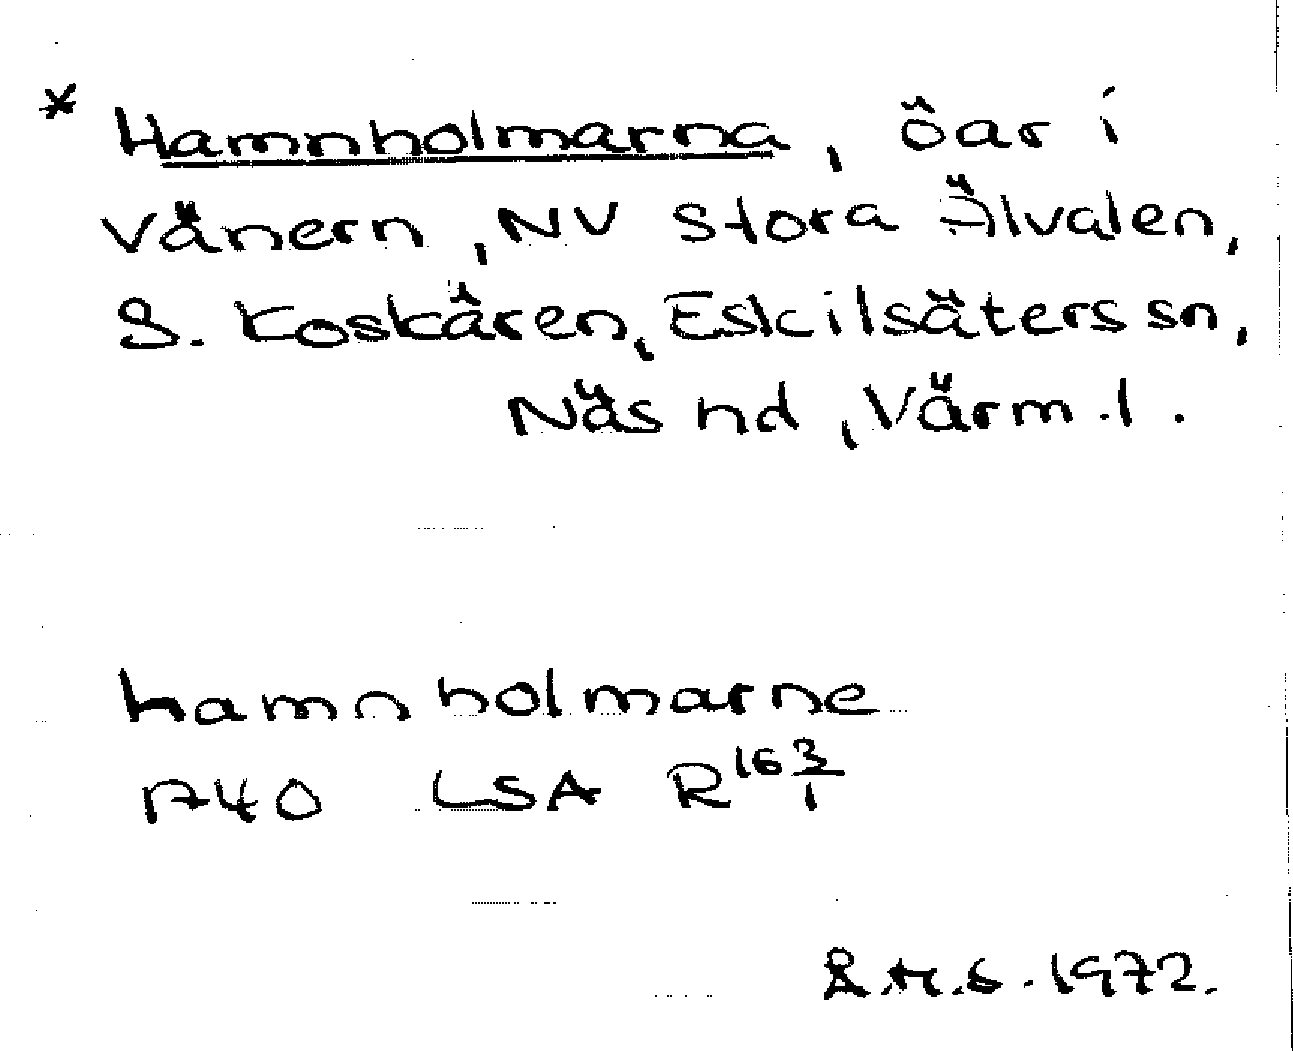 * Hamnholmarna, öar i
Vänern, NV Stora Älvalen,
S. Koskären, Eskilsäters sn,
Näs hd, Värm.l.
hamnholmarne
1740 LSA R 163/1
Å.H.S. 1972.